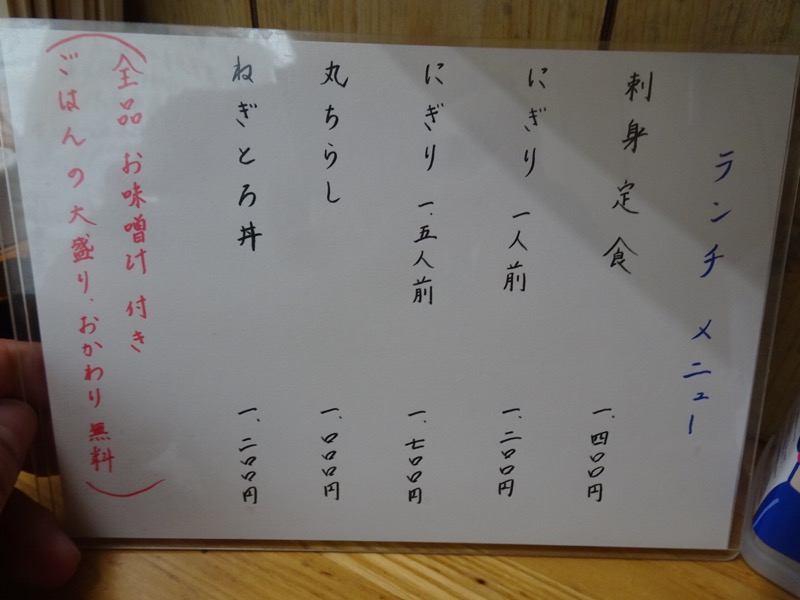 ランチ メニュー
刺身定食 一、四〇〇円
にぎり 一人前 一、二〇〇円
にぎり 一、五人前 一、七〇〇円
丸ちらし 一、〇〇〇円
ねぎとろ丼 一、二〇〇円
(全品 お味噌汁 付き
ごはんの大盛り、おかわり無料)